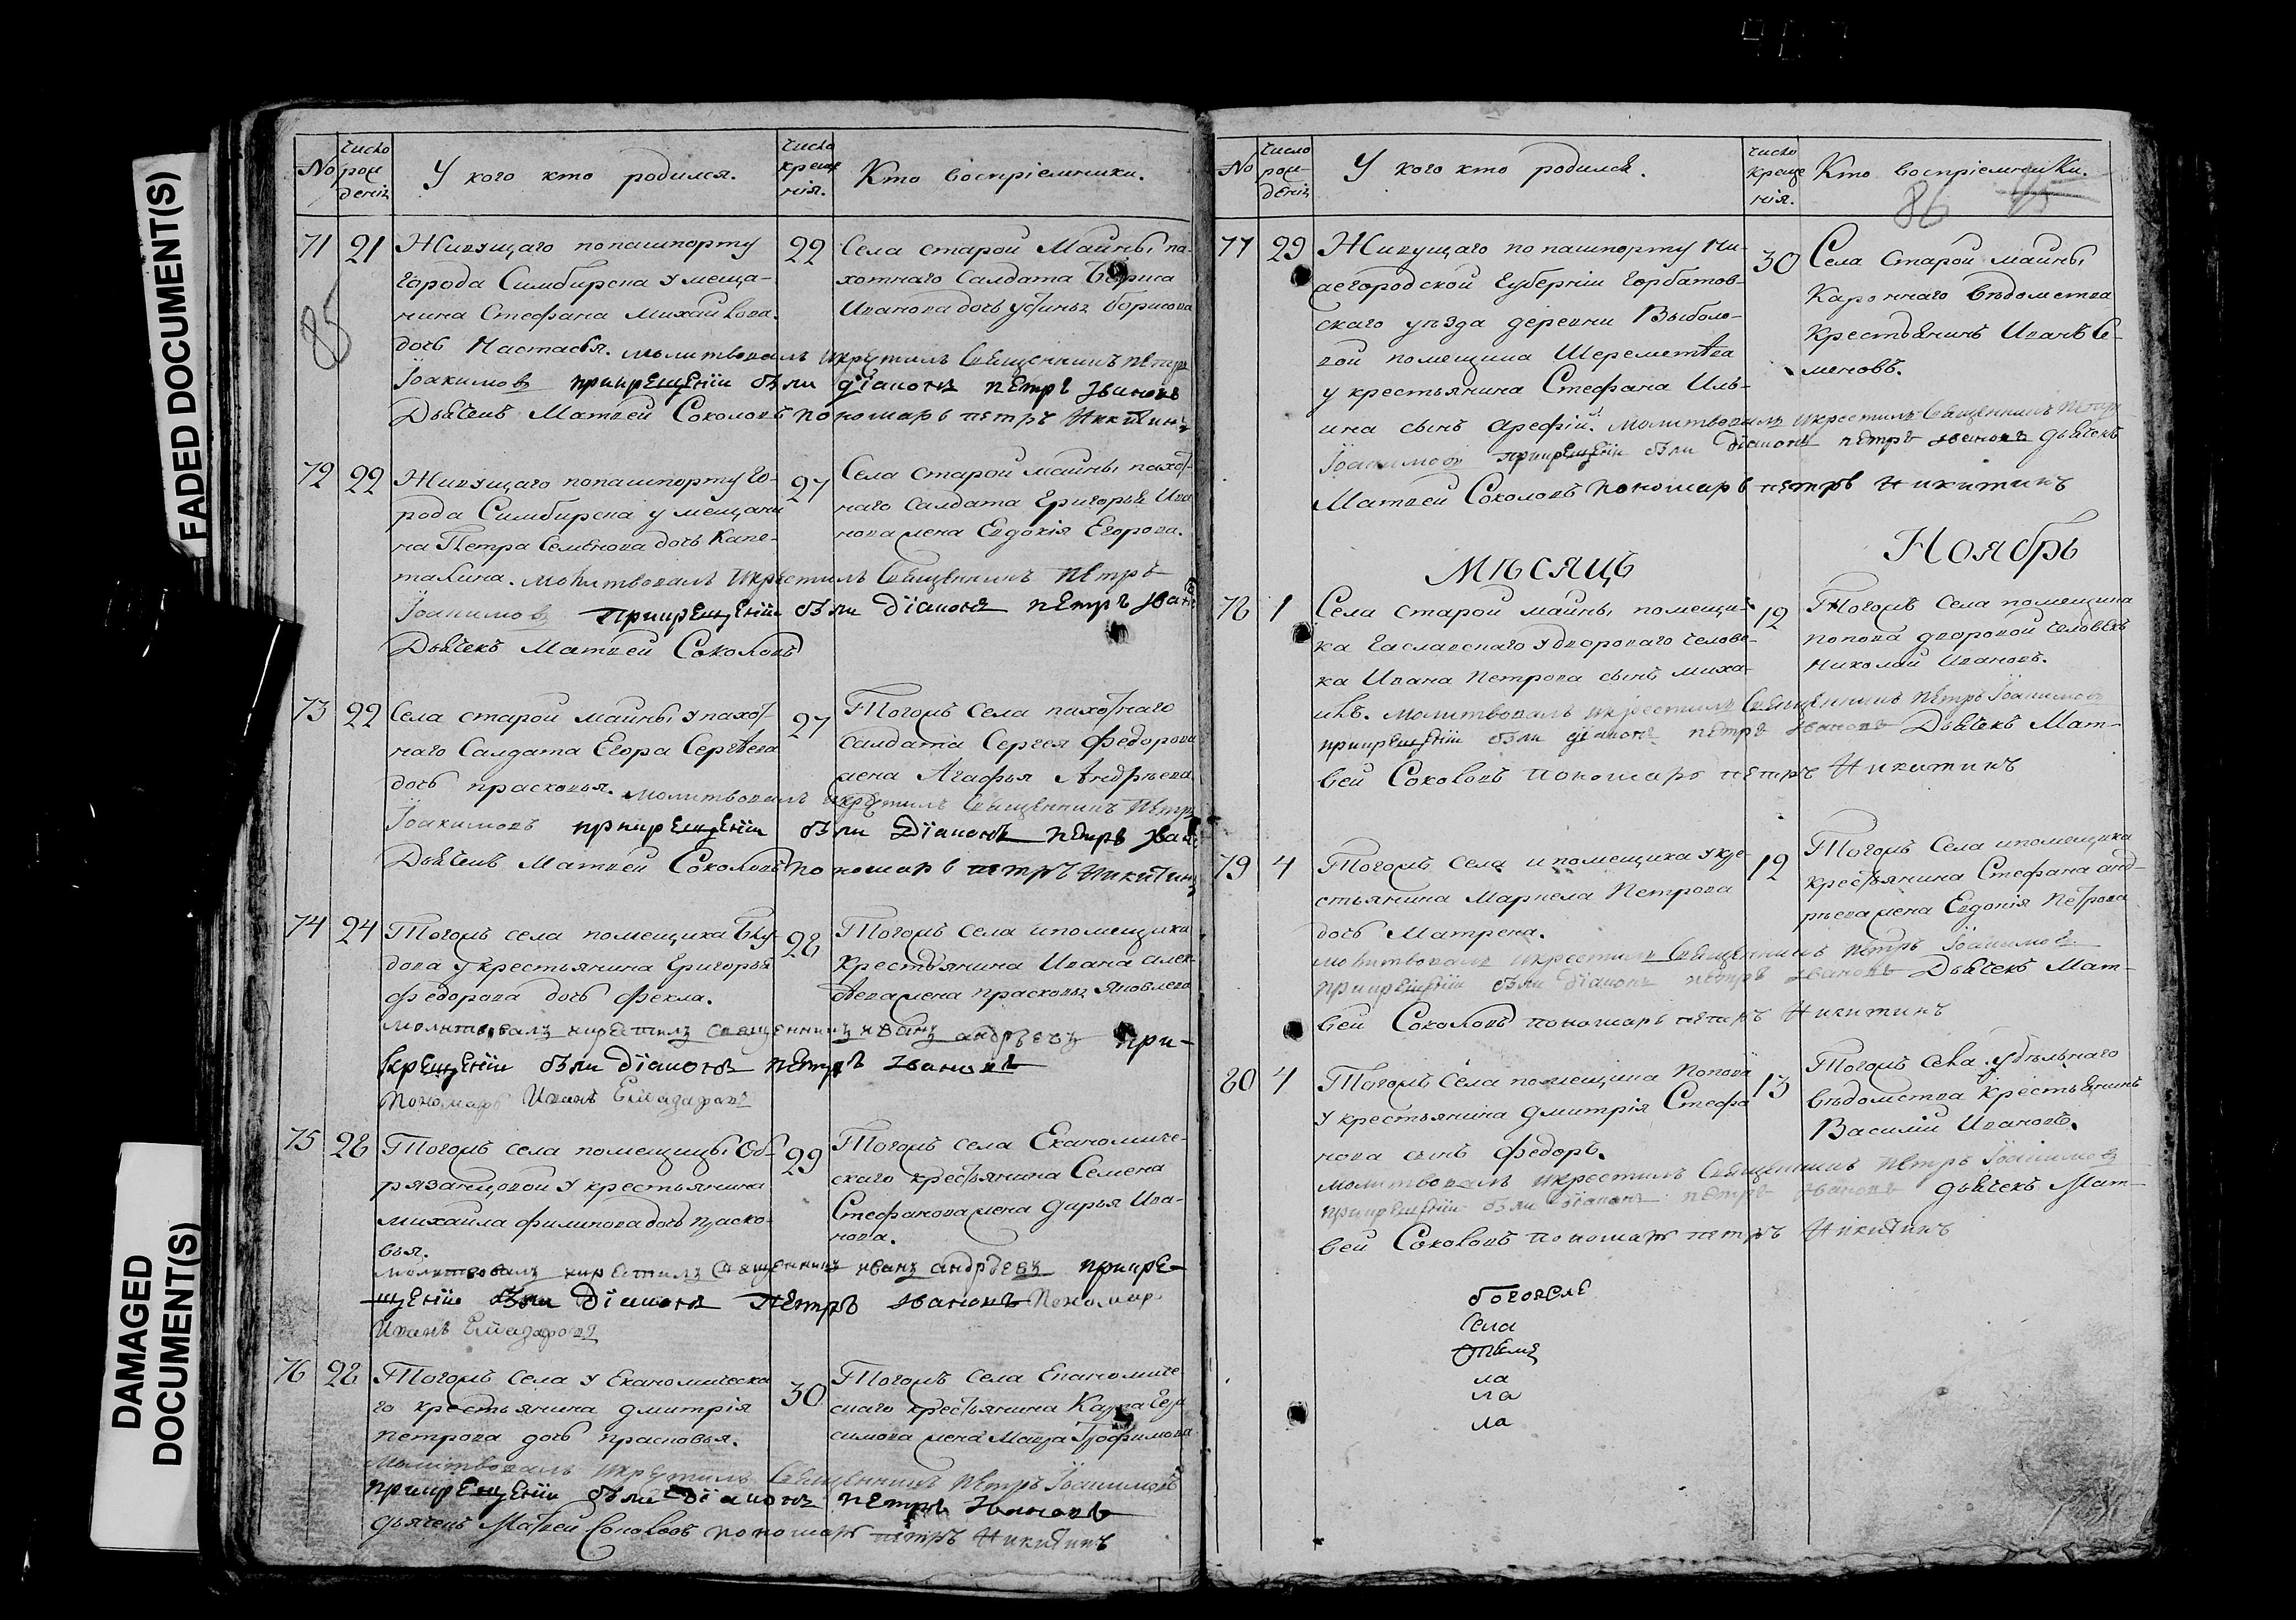 FADED DOCUMENT(S)
DAMAGED
DOCUMENT(S)
No
число рож денiя
У кого кто родился.
число креще нiя.
Кто воспрiемники.
85
71
21
Живущаго попашпорту
города Симбирска у меща-
нина Стефана Михайлова.
дочь Настасья. молитвовалъ икрестилъ Священникъ петръ
Іоакимовъ прикрещенiи были дiаконъ петръ Ивановъ
Дьячекъ Матвей Соколовъ пономарь петръ Никитинъ
22
Села старой Майны па-
хотнаго Салдата Бориса
Иванова дочь Устинья Борисова
72
22
Живущаго попашпорту го-
рода Симбирска у мещани
на Петра Семенова дочь Капе-
талина. молитвовалъ икрестилъ Священникъ петръ
Іоакимовъ прикрещенiи были дiаконъ петръ Иванъ
Дьячекъ Матвей Соколовъ
27
Села старой майны пахот-
наго Салдата Григорья Ива
нова жена Евдокiя Егорова.
73
22
Села старой майны упахот-
наго Салдата Егора Сергѣева
дочь прасковья. молитвовалъ икрестилъ Священникъ петръ
Іоакимовъ прикрещенiи были Дiаконъ петръ Иванъ
Дьячекъ Матвей Соколовъ пономарь петръ Никитинъ
27
Тогожъ Села пахотнаго
Салдата Сергея федорова
жена Агафья Андрѣева
74
24
Тогожъ села помещика Блу-
дова у крестьянина Григорья
федорова дочь фекла.
молитвовалъ икрестилъ священникъ иванъ андрѣевъ при-
крещенiи были дiаконъ петръ Ивановъ
Пономарь Иванъ Елиазаровъ
28
Тогожъ села ипомещика
крестьянина Ивана алек-
сѣева жена прасковья Яковлева
75
28
Тогожъ села помещицы Об-
рязанцовой у крестьянина
михаила филипова дочь праско-
вья.
молитвовалъ икрестилъ священникъ иванъ андрѣевъ прикре-
щенiи были дiаконъ петръ Ивановъ Пономарь
Иванъ Елиазаровъ
29
Тогожъ села Економиче-
скаго крестьянина Семена
Стефанова жена дарья Ива-
нова.
76
28
Тогожъ Села у Економическа
го крестьянина дмитрiя
петрова дочь прасковья.
Молитвовалъ икрестилъ Священникъ петръ Іоакимовъ
прикрещенiи были дiаконъ петръ Ивановъ
дьячекъ Матвей Соколовъ пономарь петръ Никитинъ
30
Тогожъ Села Економиче
скаго крестьянина Карпа Гера
симова жена Мавра Трофимова
No
число рож-денiя
У кого кто родился.
число креще нiя.
Кто воспрiемники.
86
77
29
Живущаго по пашпорту Ни-
жегородской Губернiи Горбатов-
скаго уѣзда деревни Выболо-
вой помещика Шереметѣва
у крестьянина Стефана Иль-
ина сынъ арефiй. молитвовалъ икрестилъ Священникъ петръ
Іоакимовъ прикрещенiи были дiаконъ петръ Ивановъ дьячекъ
Матвей Соколовъ пономарь петръ Никитинъ
30
Села Старой майны
Каронаго вѣдомства
крестьянинъ Иванъ Се-
меновъ.
Мѣсяцъ
Ноябрь
78
1
Села старой майны помещи-
ка Гаславскаго удвороваго челове-
ка Ивана Петрова сынъ миха-
илъ. молитвовалъ икрестилъ Священникъ петръ Іоакимовъ
прикрещенiи были дiаконъ петръ Ивановъ Дьячекъ Мат-
вей Соколовъ пономарь петръ Никитинъ
12
Тогожъ села помещика
попова дворовой человекъ
николай Ивановъ.
79
4
Тогожъ Села ипомещика укре-
стьянина Маркела Петрова
дочь Матрена.
молитвовалъ икрестилъ Священникъ петръ Іоакимовъ
прикрещенiи были дiаконъ петръ Ивановъ Дьячекъ Мат-
вей Соколовъ пономарь петръ Никитинъ
12
Тогожъ Села ипомещика
крестьянина Стефана анд-
рѣева жена Евдокiя Петрова
80
4
Тогожъ Села помещика Попова
у крестьянина дмитрiя Стефа
нова сынъ федоръ.
молитвовалъ икрестилъ Священникъ петръ Іоакимовъ
прикрещенiи были дiаконъ петръ Ивановъ дьячекъ Мат-
вей Соколовъ пономарь петръ Никитинъ
13
Тогожъ села удѣльнаго
вѣдомства крестьянинъ
Василiй Ивановъ.
Села
ла
ла
ла